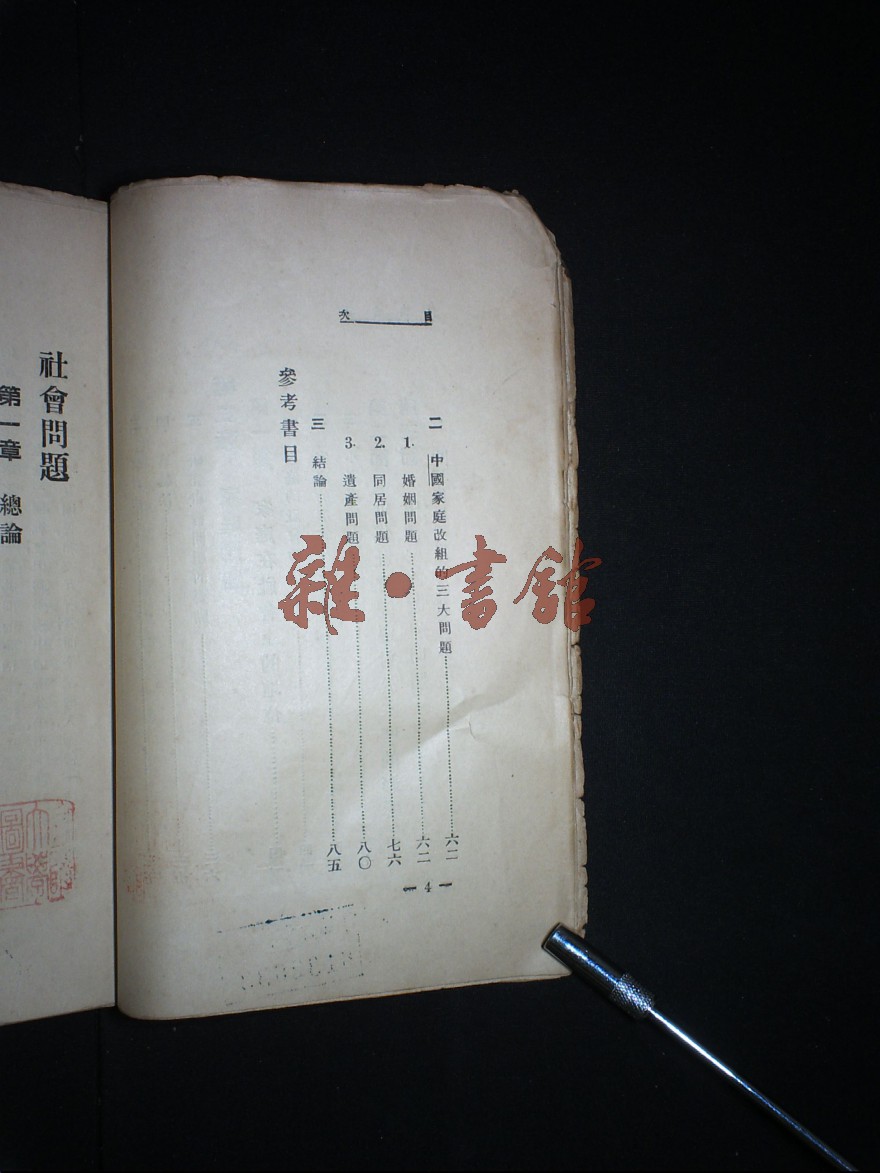 目次
二 中國家庭改組的三大問題……六二
1. 婚姻問題……六二
2. 同居問題……七六
3. 遺產問題……八〇
三 結論……八五
參考書目
— 4 —
社會問題
第一章 總論
雜·書館